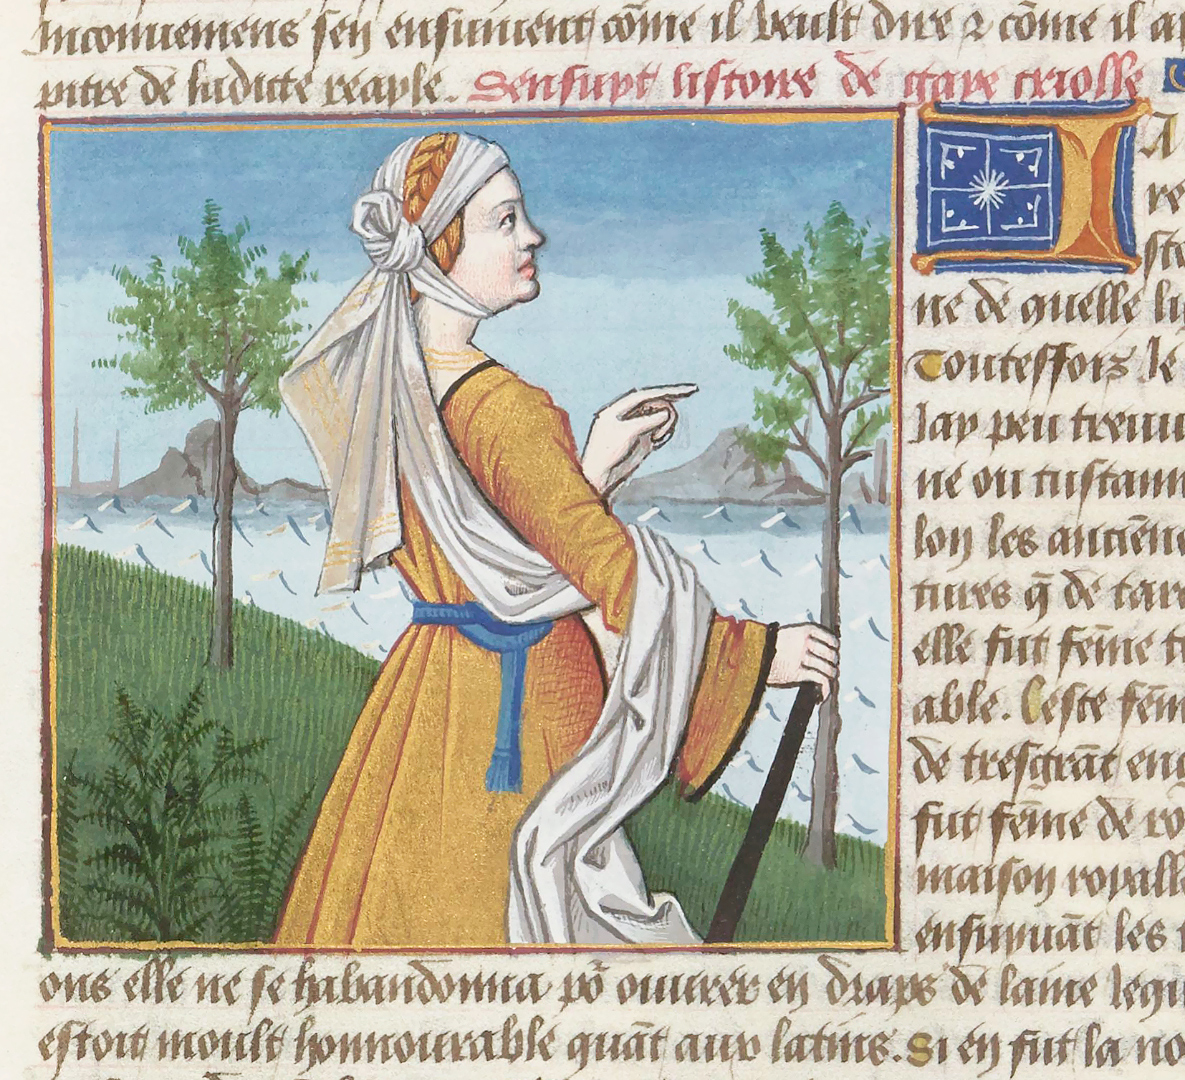 inconueniens sen ensuiuent cōme il veult dire ⁊ cōme il a
pitre de ladicte reaple. Sensuyt listoire de gaye criosse
A
re
ste
ne de quelle li
Toutesfois le
Jay peu treuu
ne ou instann
lon les anciēne
tures q̄ de care
elle fut fēme tr
able. Ceste fēm
de tresgrāt eng
fut fēme de ro
maison royalle
ensuyuāt les
ons elle ne se habandonna po͛ ouurer en draps de laine lequ
estoit moult honnourable quāt aux latins. Si en fut la no